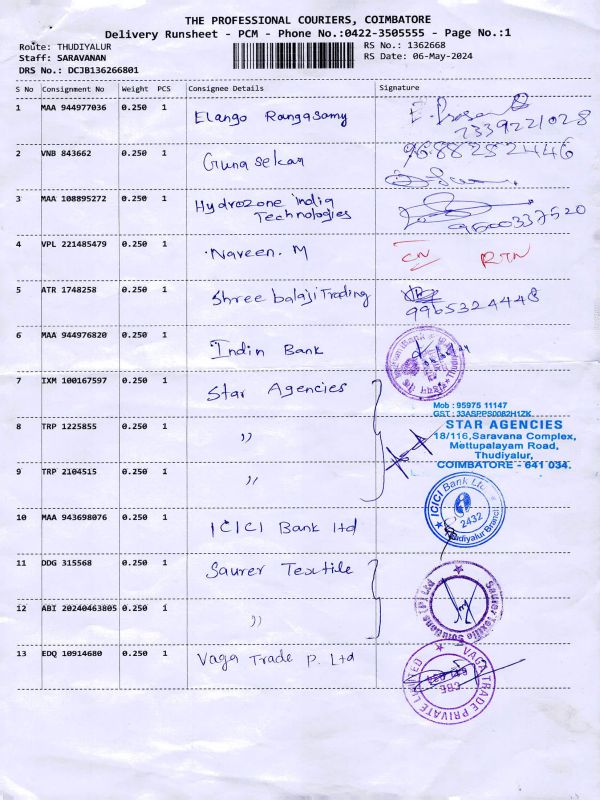 THE PROFESSIONAL COURIERS, COIMBATORE
Delivery Runsheet - PCM - Phone No.:0422-3505555 - Page No.:1
Route: THUDIYALUR
Staff: SARAVANAN
DRS No.: DCJB136266801
RS No.: 1362668
RS Date: 06-May-2024
S No Consignment No Weight PCS Consignee Details Signature
1 MAA 944977036 0.250 1 Elango Rangasamy
7339221028
2 VNB 843662 0.250 1 Gunasekar 9688252446
3 MAA 108895272 0.250 1 Hydrozone india
Technologies 9600337520
4 VPL 221485479 0.250 1 Naveen. M CN RTN
5 ATR 1748258 0.250 1 Shree balaji Trading
9965324448
6 MAA 944976820 0.250 1 Indin Bank
7 IXM 100167597 0.250 1 Star Agencies
Mob : 95975 11147
GST : 33ASPPS0082H1ZK
STAR AGENCIES
18/116,Saravana Complex,
Mettupalayam Road,
Thudiyalur,
COIMBATORE - 641 034.
8 TRP 1225855 0.250 1 ,,
9 TRP 2104515 0.250 1 ,,
10 MAA 943698076 0.250 1 ICICI Bank ltd
ICICI Bank Ltd
2432
Thudiyalur Branch
11 DDG 315568 0.250 1 Saurer Textile
Saurer Textile Solutions (P) Ltd
12 ABI 20240463805 0.250 1 ,,
13 EDQ 10914680 0.250 1 Vaga Trade P. Ltd
VAGA TRADE PRIVATE LIMITED
CBE